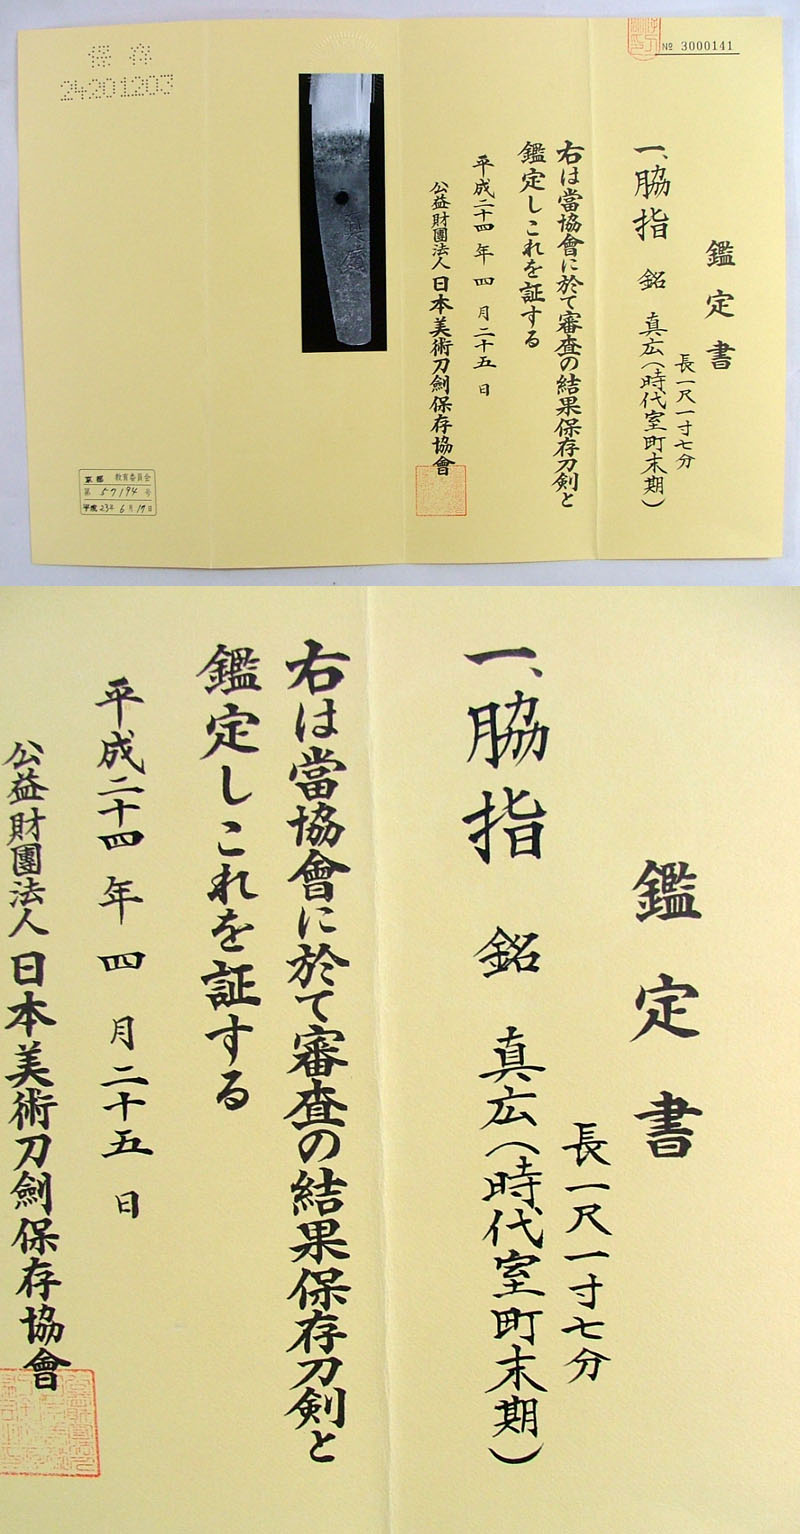 № 3000141
鑑定書
長一尺一寸七分
一、脇指 銘 真広(時代室町末期)
右は當協會に於て審査の結果保存刀剣と
鑑定しこれを証する
平成二十四年四月二十五日
公益財團法人日本美術刀劍保存協會
保存
24201203
東京都 教育委員会
第 57194 号
平成23年6月17日
鑑定書
長一尺一寸七分
一、脇指 銘 真広(時代室町末期)
右は當協會に於て審査の結果保存刀剣と
鑑定しこれを証する
平成二十四年四月二十五日
公益財團法人日本美術刀劍保存協會